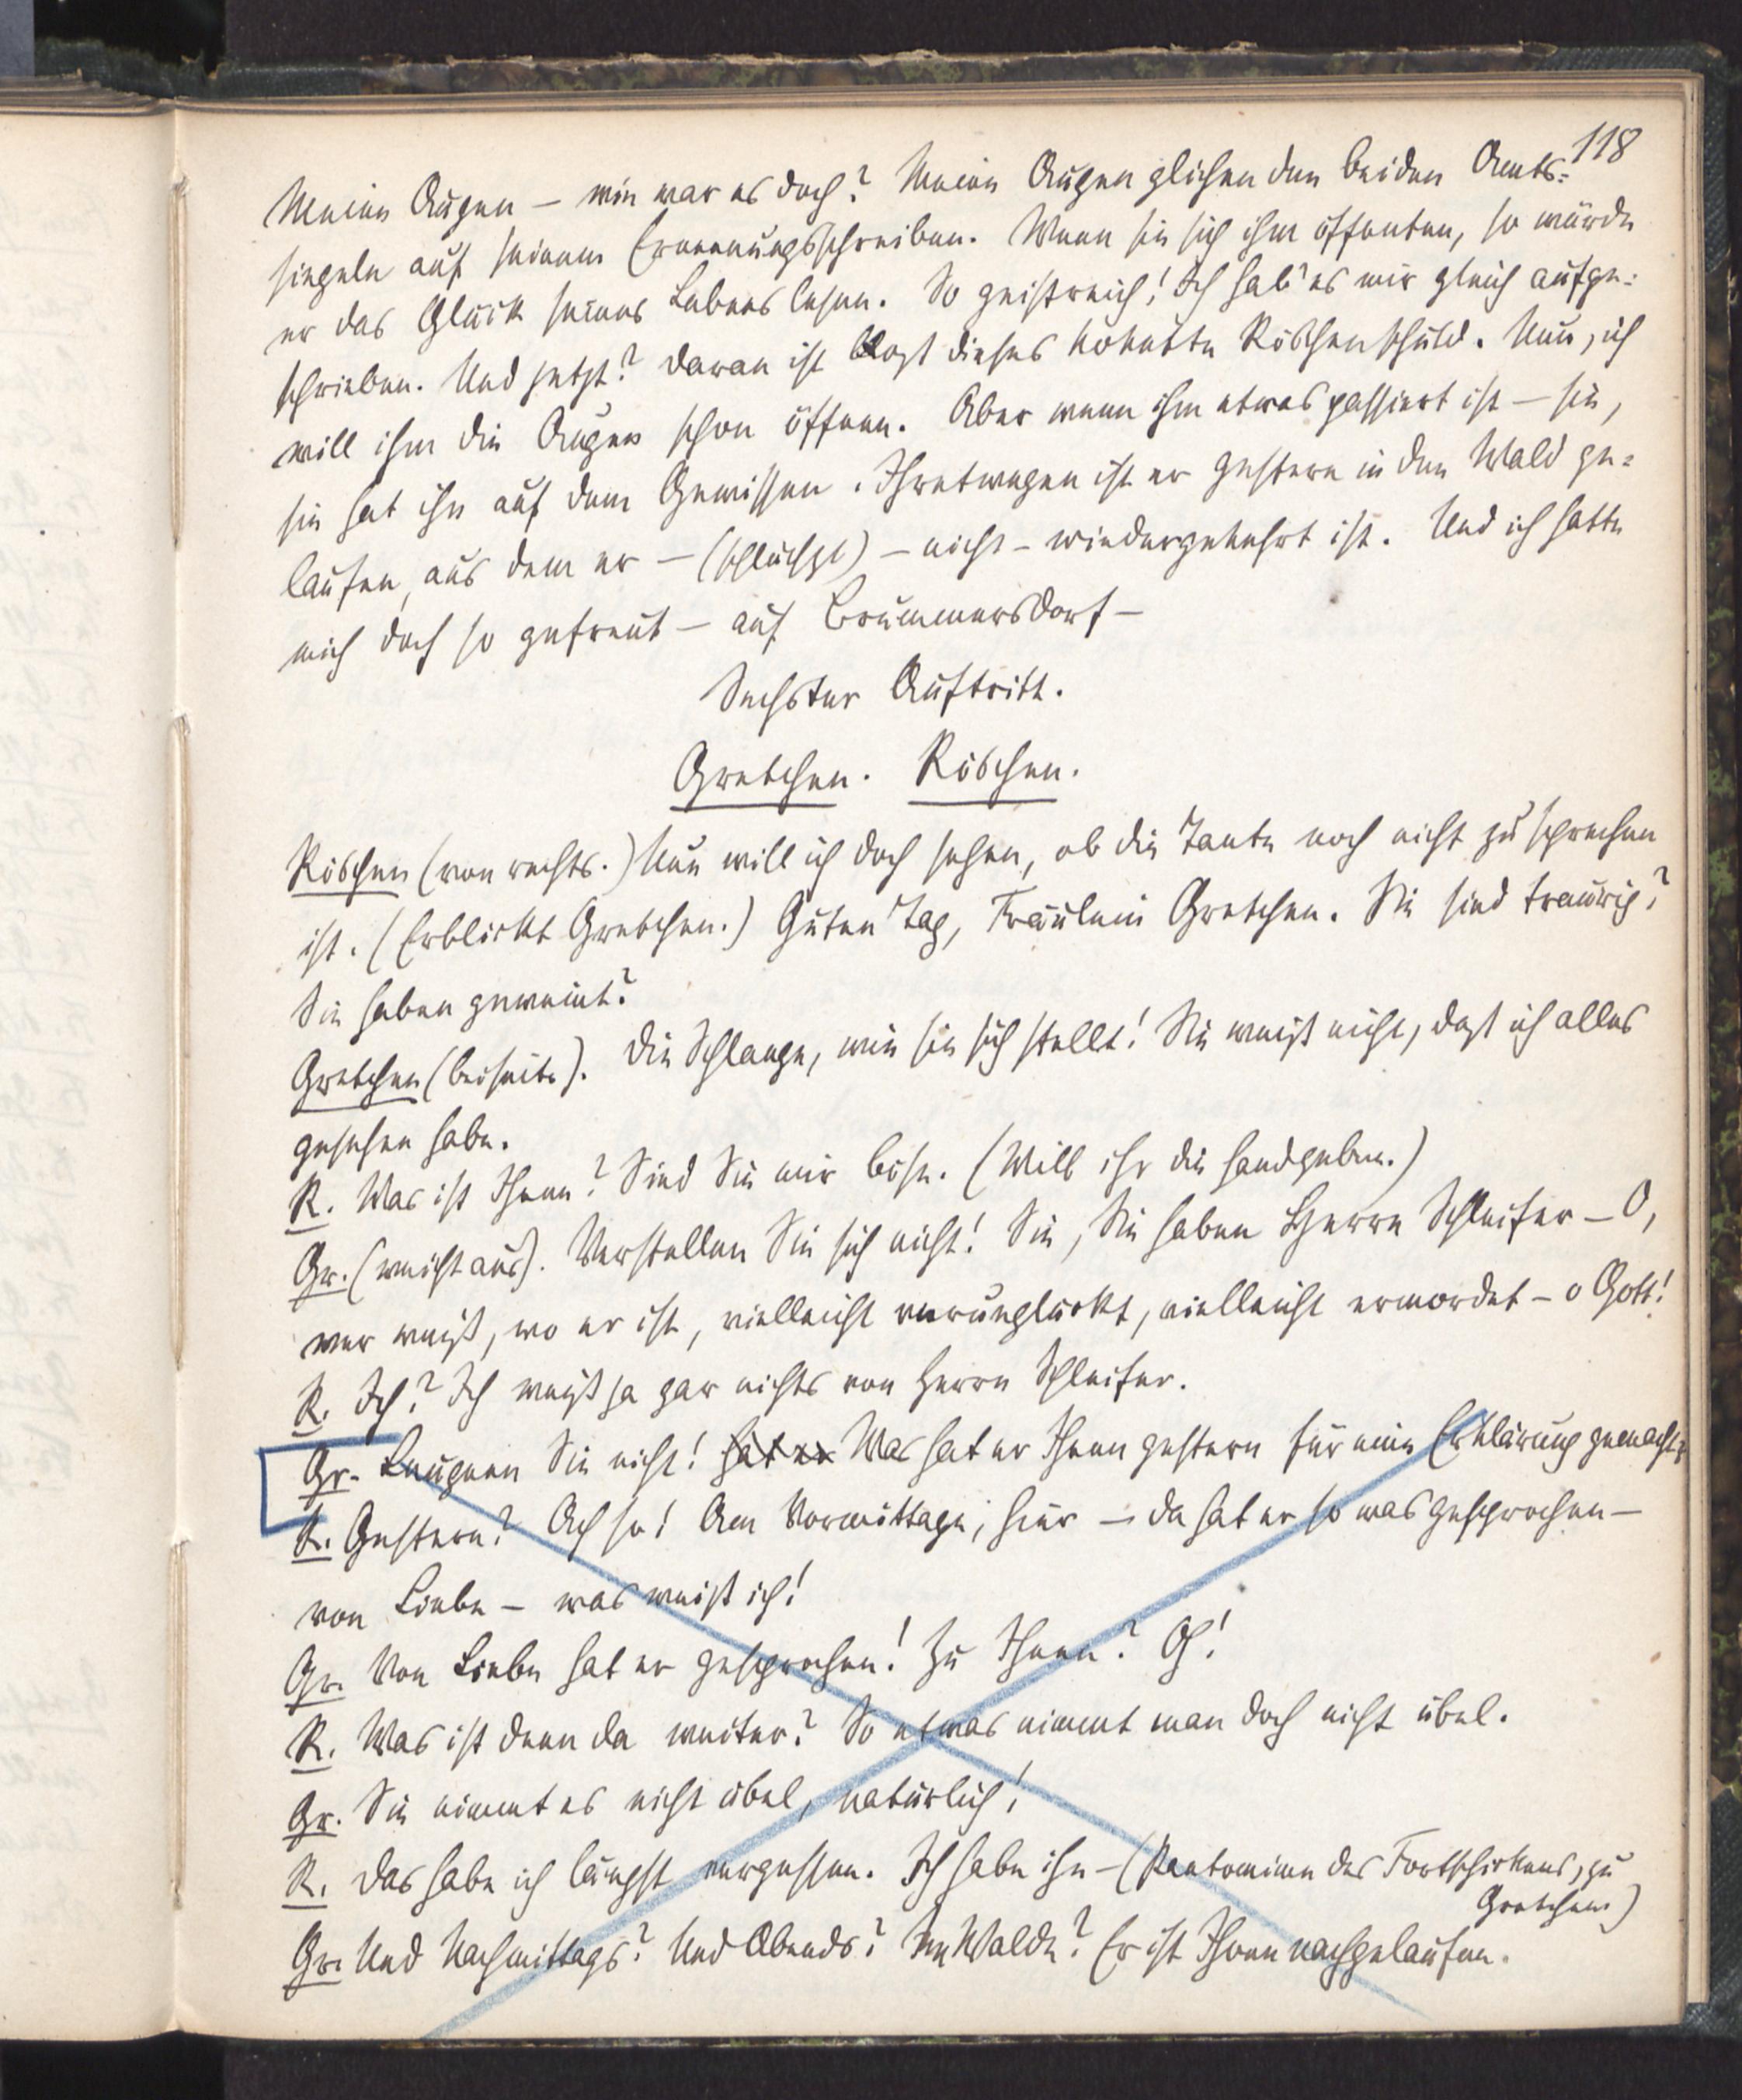 118
Meine Augen – wie war es doch? Meine Augen glichen den beiden Amts-
siegeln auf seinem Ernennungsschreiben. Wenn sie sich ihm öffneten, so würde
er das Glück seines Lebens lesen. So geistreich! Ich hab' es mir gleich aufge-
schrieben. Und jetzt? Daran ist blosz dieses kokette Röschen schuld. Nun, ich
will ihm die Augen schon öffnen. Aber wenn ihm etwas passiert ist – sie,
sie hat ihn auf dem Gewissen. Ihretwegen ist er gestern in den Wald ge-
laufen, aus dem er – (schluchzt) – nicht – wiedergekehrt ist. Und ich hatte
mich doch so gefreut – auf Brummersdorf –
Sechster Auftritt.
Gretchen. Röschen.
Röschen (von rechts.) Nun will ich doch sehen, ob die Tante noch nicht zu sprechen
ist. (Erblickt Gretchen.) Guten Tag, Fräulein Gretchen. Sie sind traurig?
Sie haben geweint?
Gretchen (beiseite). Die Schlange, wie sie sich stellt! Sie weiß nicht, daß ich alles
gesehen habe.
R. Was ist Ihnen? Sind Sie mir böse. (Will ihr die Hand geben.)
Gr. (weicht aus). Verstellen Sie sich nicht! Sie, Sie haben Herrn Schleifer – O,
wer weiß, wo er ist, vielleicht verunglückt, vielleicht ermordet – o Gott!
R. Ich? Ich weiß ja gar nichts von Herrn Schleifer.
Gr. Leugnen Sie nicht! Hat er Was hat er Ihnen gestern für eine Erklärung gemacht?
R. Gestern? Ach so! Am Vormittage, hier – da hat er so was gesprochen –
von Liebe – was weiß ich!
Gr. Von Liebe hat er gesprochen! Zu Ihnen? Oh!
R. Was ist denn da weiter? So etwas nimmt man doch nicht übel.
Gr. Sie nimmt es nicht übel, natürlich!
R. Das habe ich längst vergessen. Ich habe ihn – (Pantomime des Fortschickens, zu
Gretchen)
Gr. Und Nachmittags? Und Abends? Im Walde? Er ist Ihnen nachgelaufen.